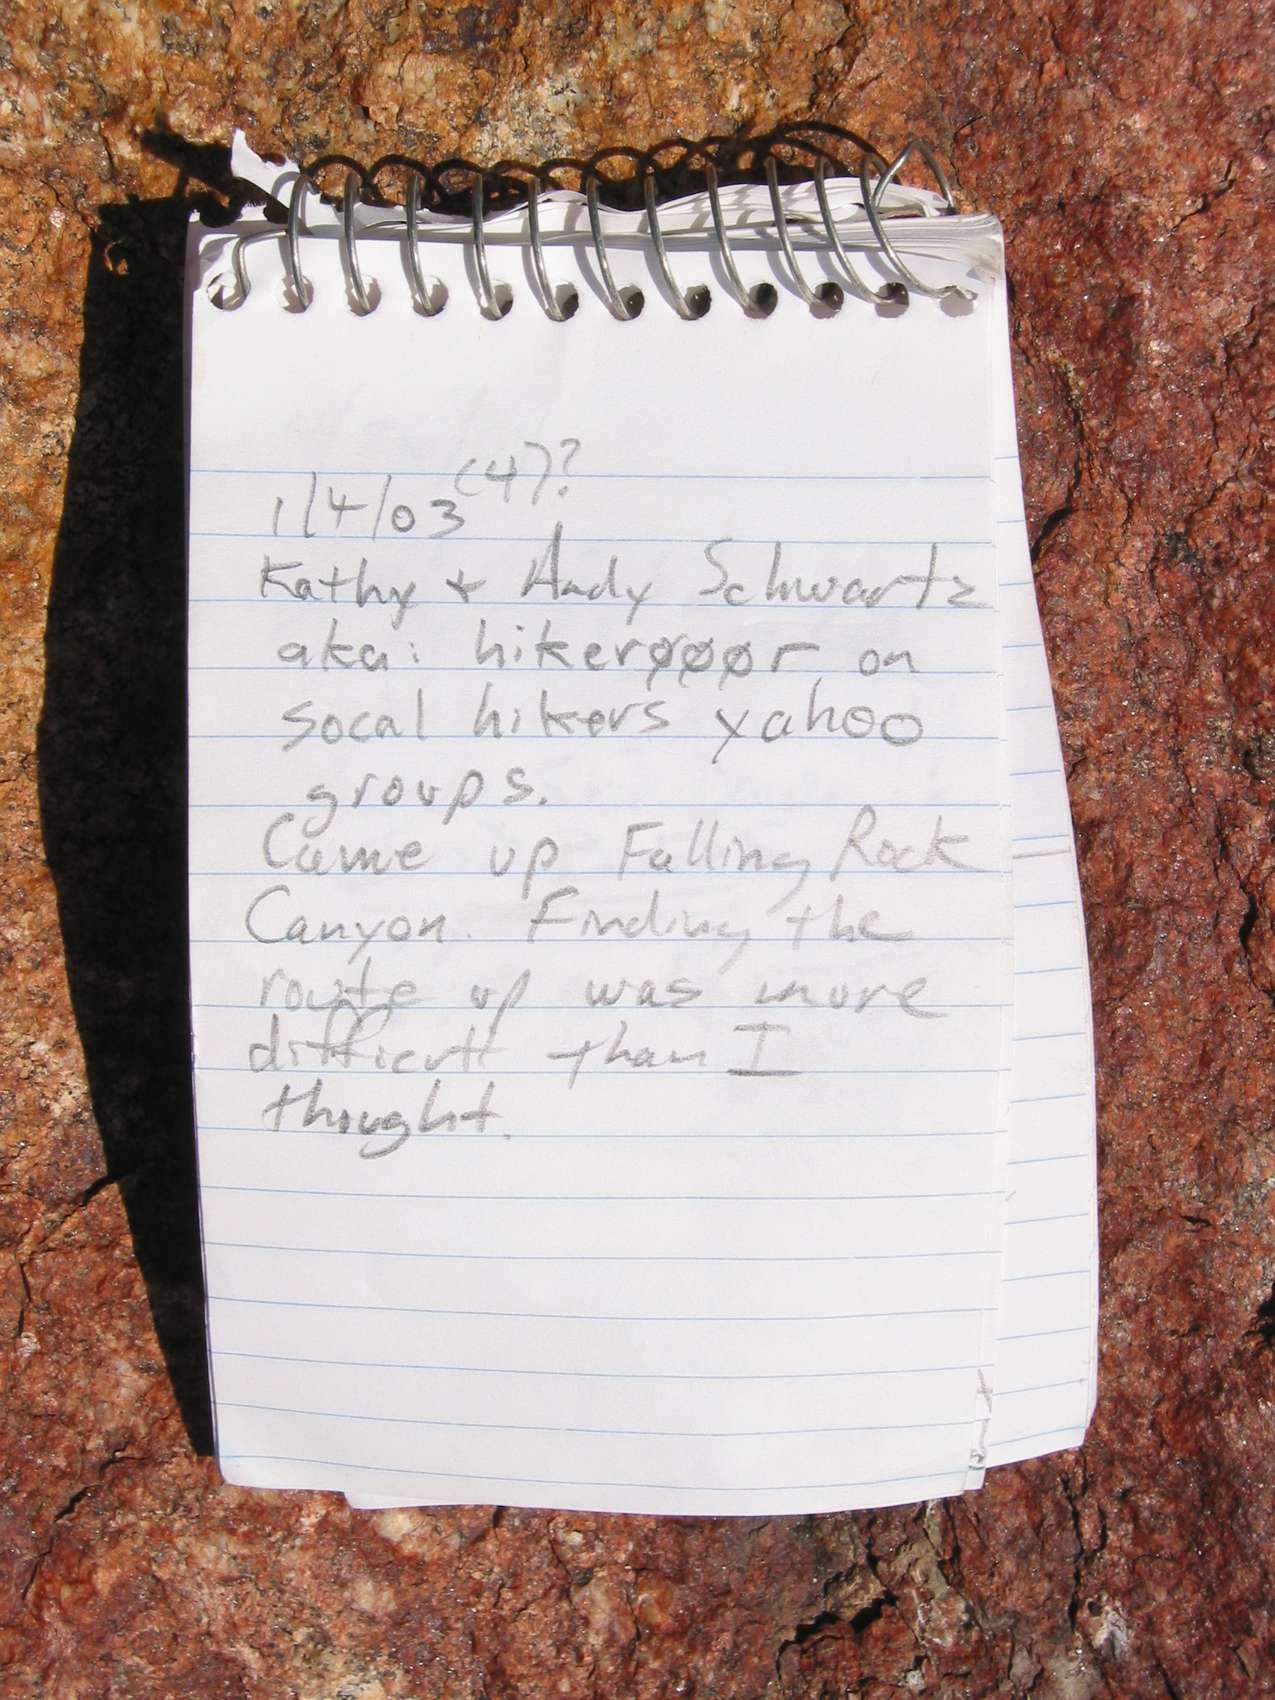 1/4/03 (4)?
Kathy + Andy Schwartz
aka: hikerøøør on
socal hikers yahoo
groups.
Came up Falling Rock
Canyon. Finding the
route up was more
difficult than I
thought.